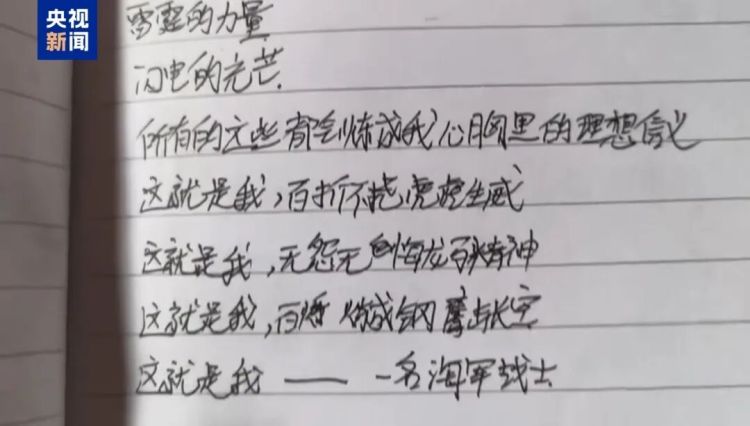 央视
新闻
雷霆的力量
闪电的光芒.
所有的这些都会炼成我心胸里的理想信义
这就是我,百折不挠虎虎生威
这就是我,无怨无悔龙马精神
这就是我,百炼成钢 搏击长空
这就是我——一名海军战士